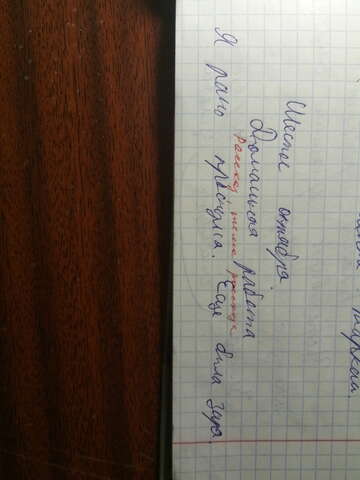 Шестое октября.
Домашняя работа
Рассказ
Я рано проснулся. Еще была заря.